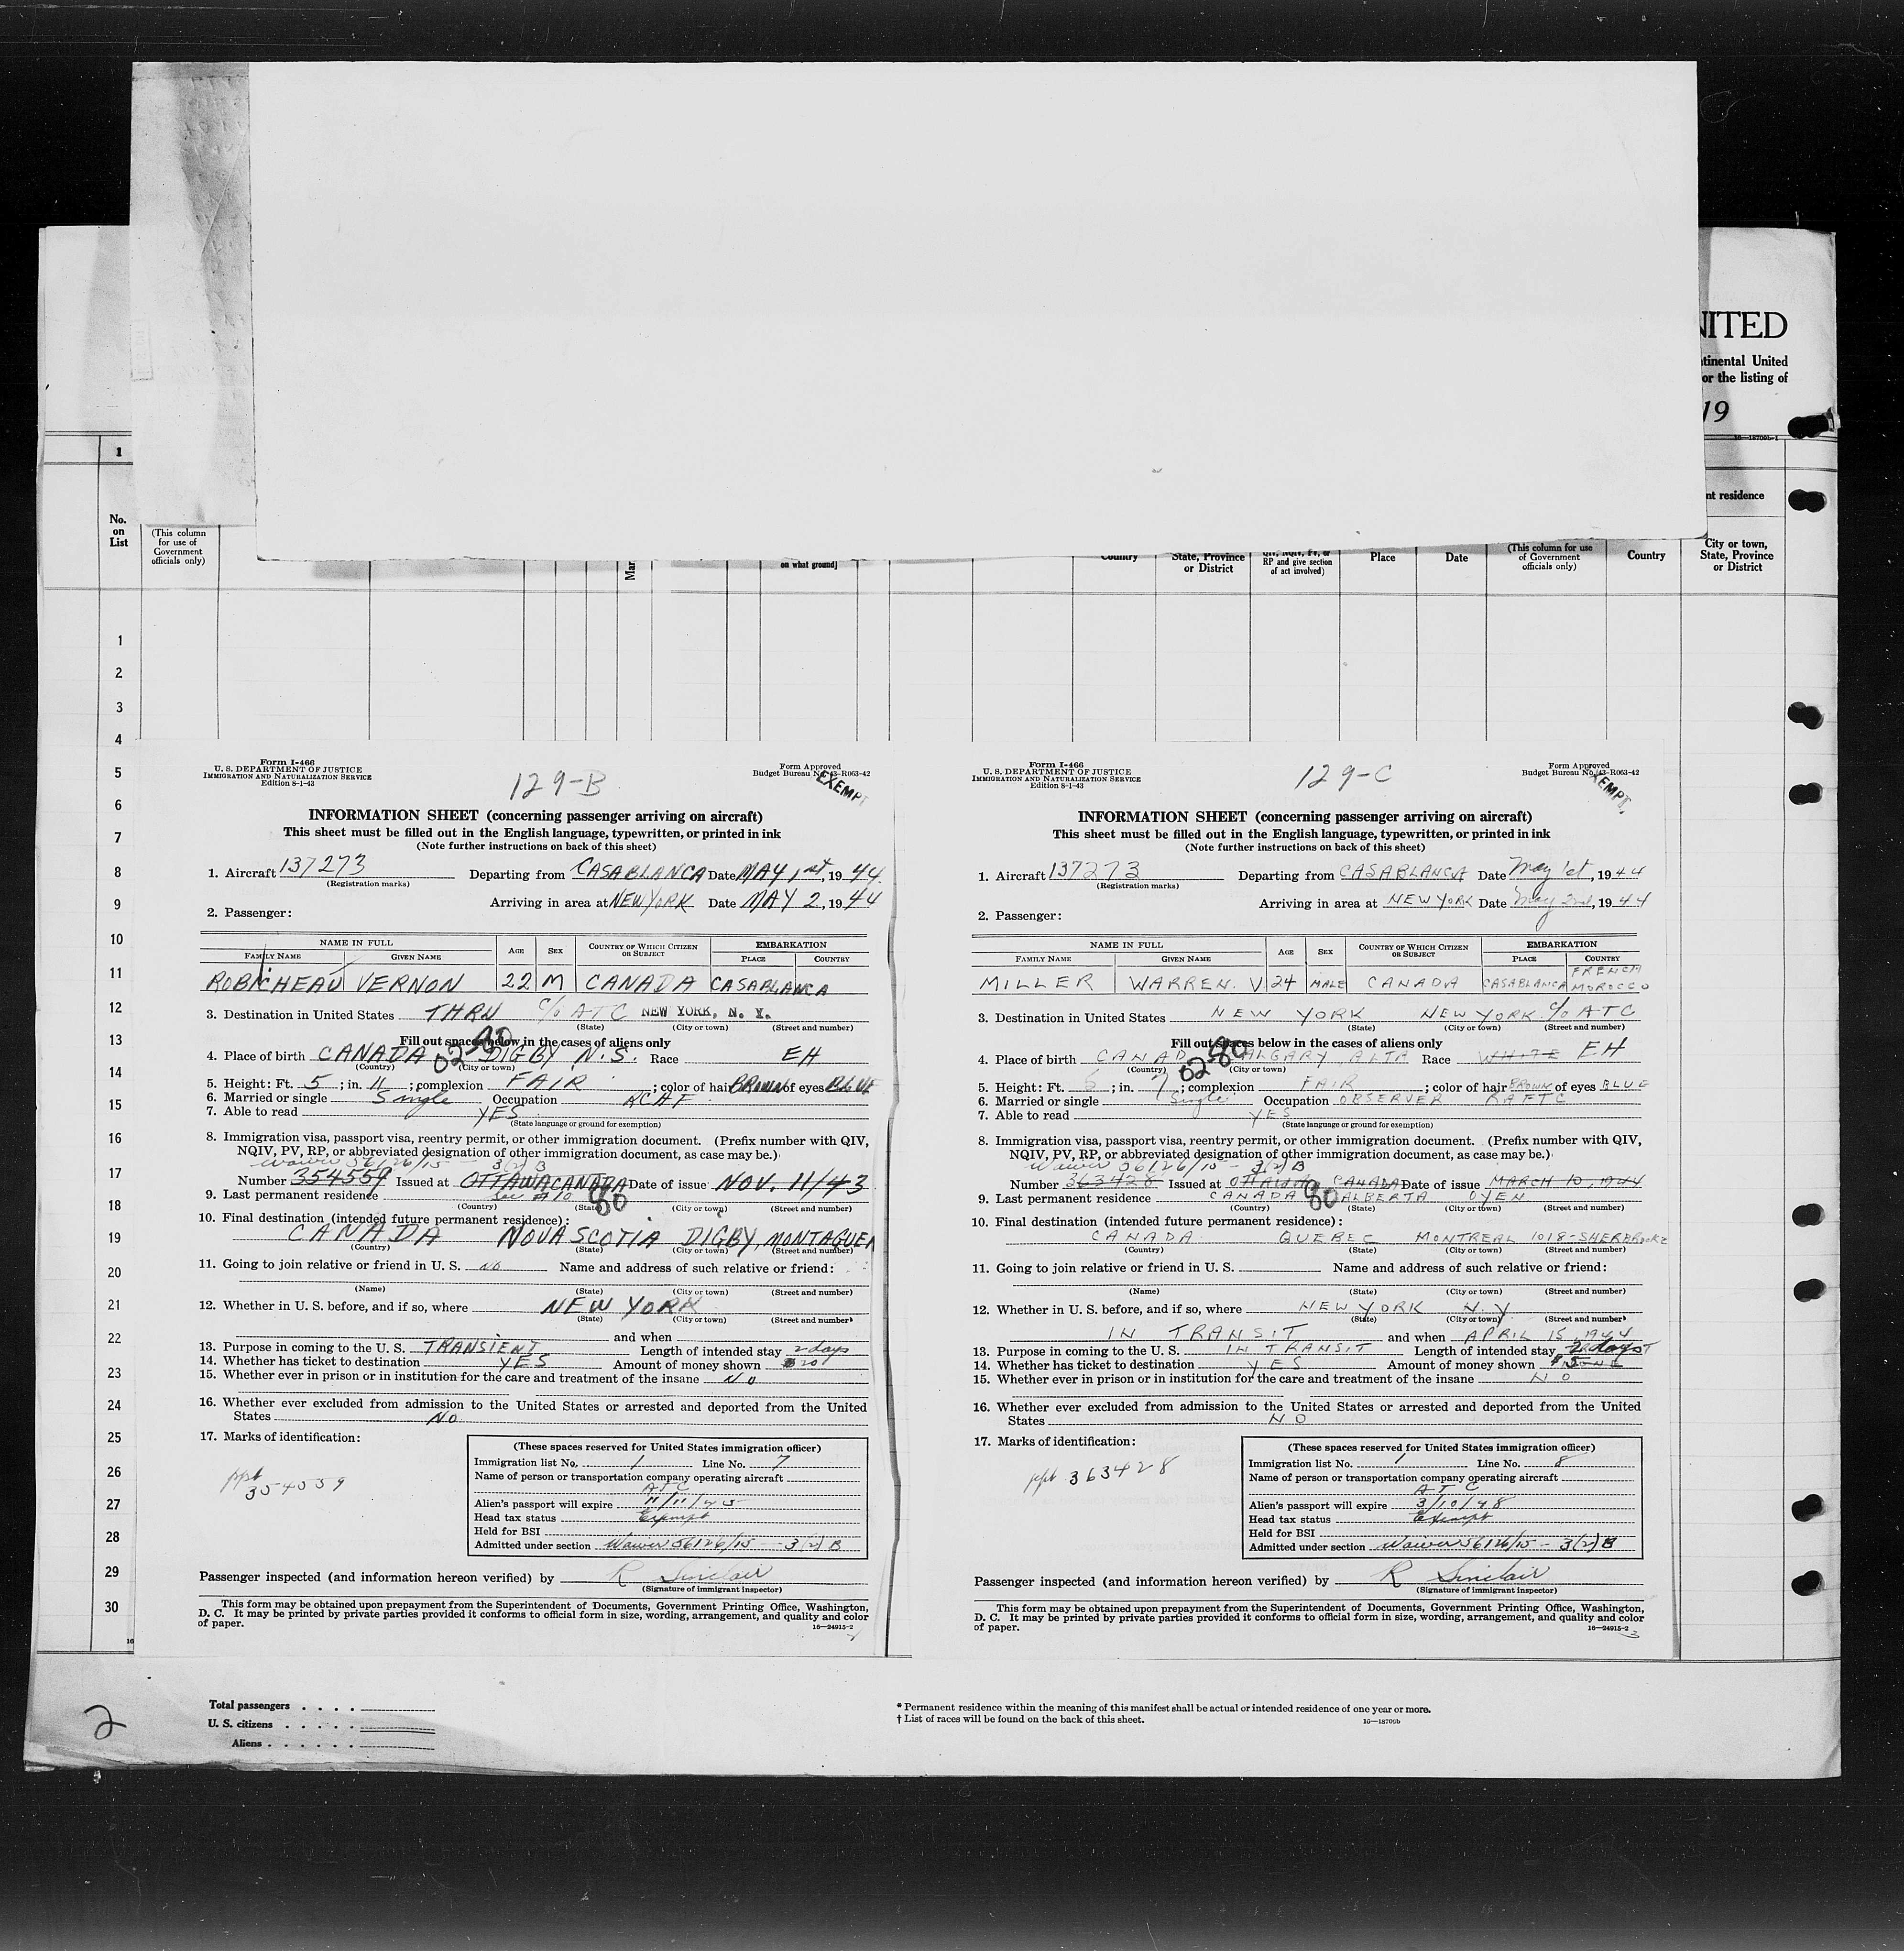 NITED
tinental United
or the listing of
19
16—18709b-1
1
No.
on
List
(This column
for use of
Government
officials only)
on what ground]
Country
State, Province
or District
RP and give section
of act involved)
Place
Date
(This column for use
of Government
officials only)
Country
nt residence
City or town,
State, Province
or District
1
2
3
4
5
6
7
8
9
10
11
12
13
14
15
16
17
18
19
20
21
22
23
24
25
26
27
28
29
30
Form I-466
U. S. DEPARTMENT OF JUSTICE
IMMIGRATION AND NATURALIZATION SERVICE
Edition 8-1-43
129-B
Form Approved
Budget Bureau No. 43-R063-42
EXEMPT
INFORMATION SHEET (concerning passenger arriving on aircraft)
This sheet must be filled out in the English language, typewritten, or printed in ink
(Note further instructions on back of this sheet)
1. Aircraft 137273 Departing from CASABLANCA Date MAY 1st, 1944.
(Registration marks)
Arriving in area at NEW YORK Date MAY 2, 1944
2. Passenger:
NAME IN FULL AGE SEX COUNTRY OF WHICH CITIZEN OR SUBJECT EMBARKATION
FAMILY NAME GIVEN NAME PLACE COUNTRY
ROBICHEAU VERNON 22 M CANADA CASABLANCA
3. Destination in United States THRU C/O ATC NEW YORK, N. Y.
(State) (City or town) (Street and number)
Fill out spaces below in the cases of aliens only
02-80
4. Place of birth CANADA DIGBY N.S. Race EH
(Country) (City or town)
5. Height: Ft. 5; in. 11; complexion FAIR; color of hair BROWN of eyes BLUE
6. Married or single Single Occupation RCAF
7. Able to read YES
(State language or ground for exemption)
8. Immigration visa, passport visa, reentry permit, or other immigration document. (Prefix number with QIV,
NQIV, PV, RP, or abbreviated designation of other immigration document, as case may be.)
Waiver 56126/15 - 3(2) B
Number 354559 Issued at OTTAWA CANADA Date of issue NOV. 11/43
9. Last permanent residence see #10 80
(Country) (State) (City or town) (Street and number)
10. Final destination (intended future permanent residence):
CANADA NOVA SCOTIA DIGBY, MONTAGUE
(Country) (State) (City or town) (Street and number)
11. Going to join relative or friend in U. S. NO Name and address of such relative or friend:
(Name) (State) (City or town) (Street and number)
12. Whether in U. S. before, and if so, where NEW YORK
(State) (City or town) (Street and number)
and when
13. Purpose in coming to the U. S. TRANSIENT Length of intended stay 2 days
14. Whether has ticket to destination YES Amount of money shown $20
15. Whether ever in prison or in institution for the care and treatment of the insane NO
16. Whether ever excluded from admission to the United States or arrested and deported from the United
States NO
17. Marks of identification:
ppt
354559
(These spaces reserved for United States immigration officer)
Immigration list No. 1 Line No. 7
Name of person or transportation company operating aircraft
ATC
Alien's passport will expire 11/11/45
Head tax status Exempt
Held for BSI
Admitted under section Waiver 56126/15 - 3(2) B
Passenger inspected (and information hereon verified) by R Sinclair
(Signature of immigrant inspector)
This form may be obtained upon prepayment from the Superintendent of Documents, Government Printing Office, Washington,
D. C. It may be printed by private parties provided it conforms to official form in size, wording, arrangement, and quality and color
of paper.
16—24915-2
Form I-466
U. S. DEPARTMENT OF JUSTICE
IMMIGRATION AND NATURALIZATION SERVICE
Edition 8-1-43
129-C
Form Approved
Budget Bureau No. 43-R063-42
EXEMPT
INFORMATION SHEET (concerning passenger arriving on aircraft)
This sheet must be filled out in the English language, typewritten, or printed in ink
(Note further instructions on back of this sheet)
1. Aircraft 137273 Departing from CASABLANCA Date May 1st, 1944
(Registration marks)
Arriving in area at NEW YORK Date May 2nd, 1944
2. Passenger:
NAME IN FULL AGE SEX COUNTRY OF WHICH CITIZEN OR SUBJECT EMBARKATION
FAMILY NAME GIVEN NAME PLACE COUNTRY
MILLER WARREN. V. 24 MALE CANADA CASABLANCA FRENCH MOROCCO
3. Destination in United States NEW YORK NEW YORK C/O ATC
(State) (City or town) (Street and number)
Fill out spaces below in the cases of aliens only
02-80
4. Place of birth CANADA CALGARY ALTA Race WHITE EH
(Country) (City or town)
5. Height: Ft. 5; in. 7; complexion FAIR; color of hair BROWN of eyes BLUE
6. Married or single Single Occupation OBSERVER RAFTC
7. Able to read YES
(State language or ground for exemption)
8. Immigration visa, passport visa, reentry permit, or other immigration document. (Prefix number with QIV,
NQIV, PV, RP, or abbreviated designation of other immigration document, as case may be.)
Waiver 56126/15 - 3(2) B
Number 363428 Issued at Ottawa CANADA Date of issue MARCH 10, 1944
9. Last permanent residence CANADA 80 ALBERTA OYEN
(Country) (State) (City or town) (Street and number)
10. Final destination (intended future permanent residence):
CANADA QUEBEC MONTREAL 1018-SHERBROOKE
(Country) (State) (City or town) (Street and number)
11. Going to join relative or friend in U. S. Name and address of such relative or friend:
(Name) (State) (City or town) (Street and number)
12. Whether in U. S. before, and if so, where NEW YORK N.Y
(State) (City or town) (Street and number)
IN TRANSIT and when APRIL 15, 1944
13. Purpose in coming to the U. S. IN TRANSIT Length of intended stay 2 days
14. Whether has ticket to destination YES Amount of money shown $5
15. Whether ever in prison or in institution for the care and treatment of the insane NO
16. Whether ever excluded from admission to the United States or arrested and deported from the United
States NO
17. Marks of identification:
ppt 363428
(These spaces reserved for United States immigration officer)
Immigration list No. 1 Line No. 8
Name of person or transportation company operating aircraft
ATC
Alien's passport will expire 3/10/48
Head tax status Exempt
Held for BSI
Admitted under section Waiver 56126/15 - 3(2) B
Passenger inspected (and information hereon verified) by R Sinclair
(Signature of immigrant inspector)
This form may be obtained upon prepayment from the Superintendent of Documents, Government Printing Office, Washington,
D. C. It may be printed by private parties provided it conforms to official form in size, wording, arrangement, and quality and color
of paper.
16—24915-2
2
Total passengers . . . .
U. S. citizens . . . . .
Aliens . . . . . .
* Permanent residence within the meaning of this manifest shall be actual or intended residence of one year or more.
† List of races will be found on the back of this sheet.
16—18709b